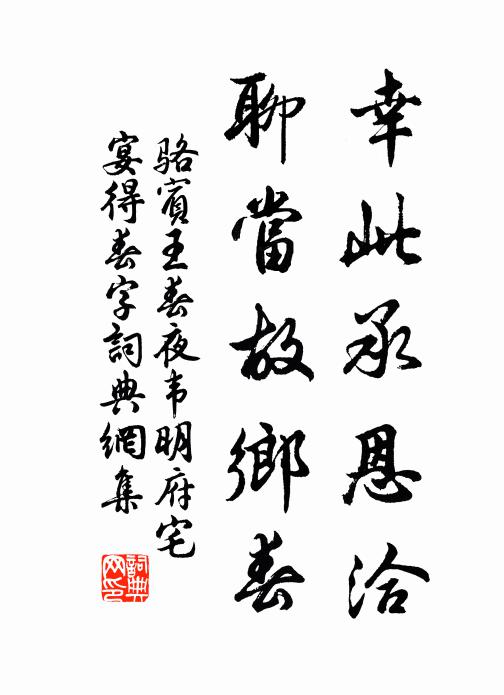 幸此承恩洽
聊當故鄉春
駱賓王春夜韦明府宅
宴得春字詞典網集
詞典
网印